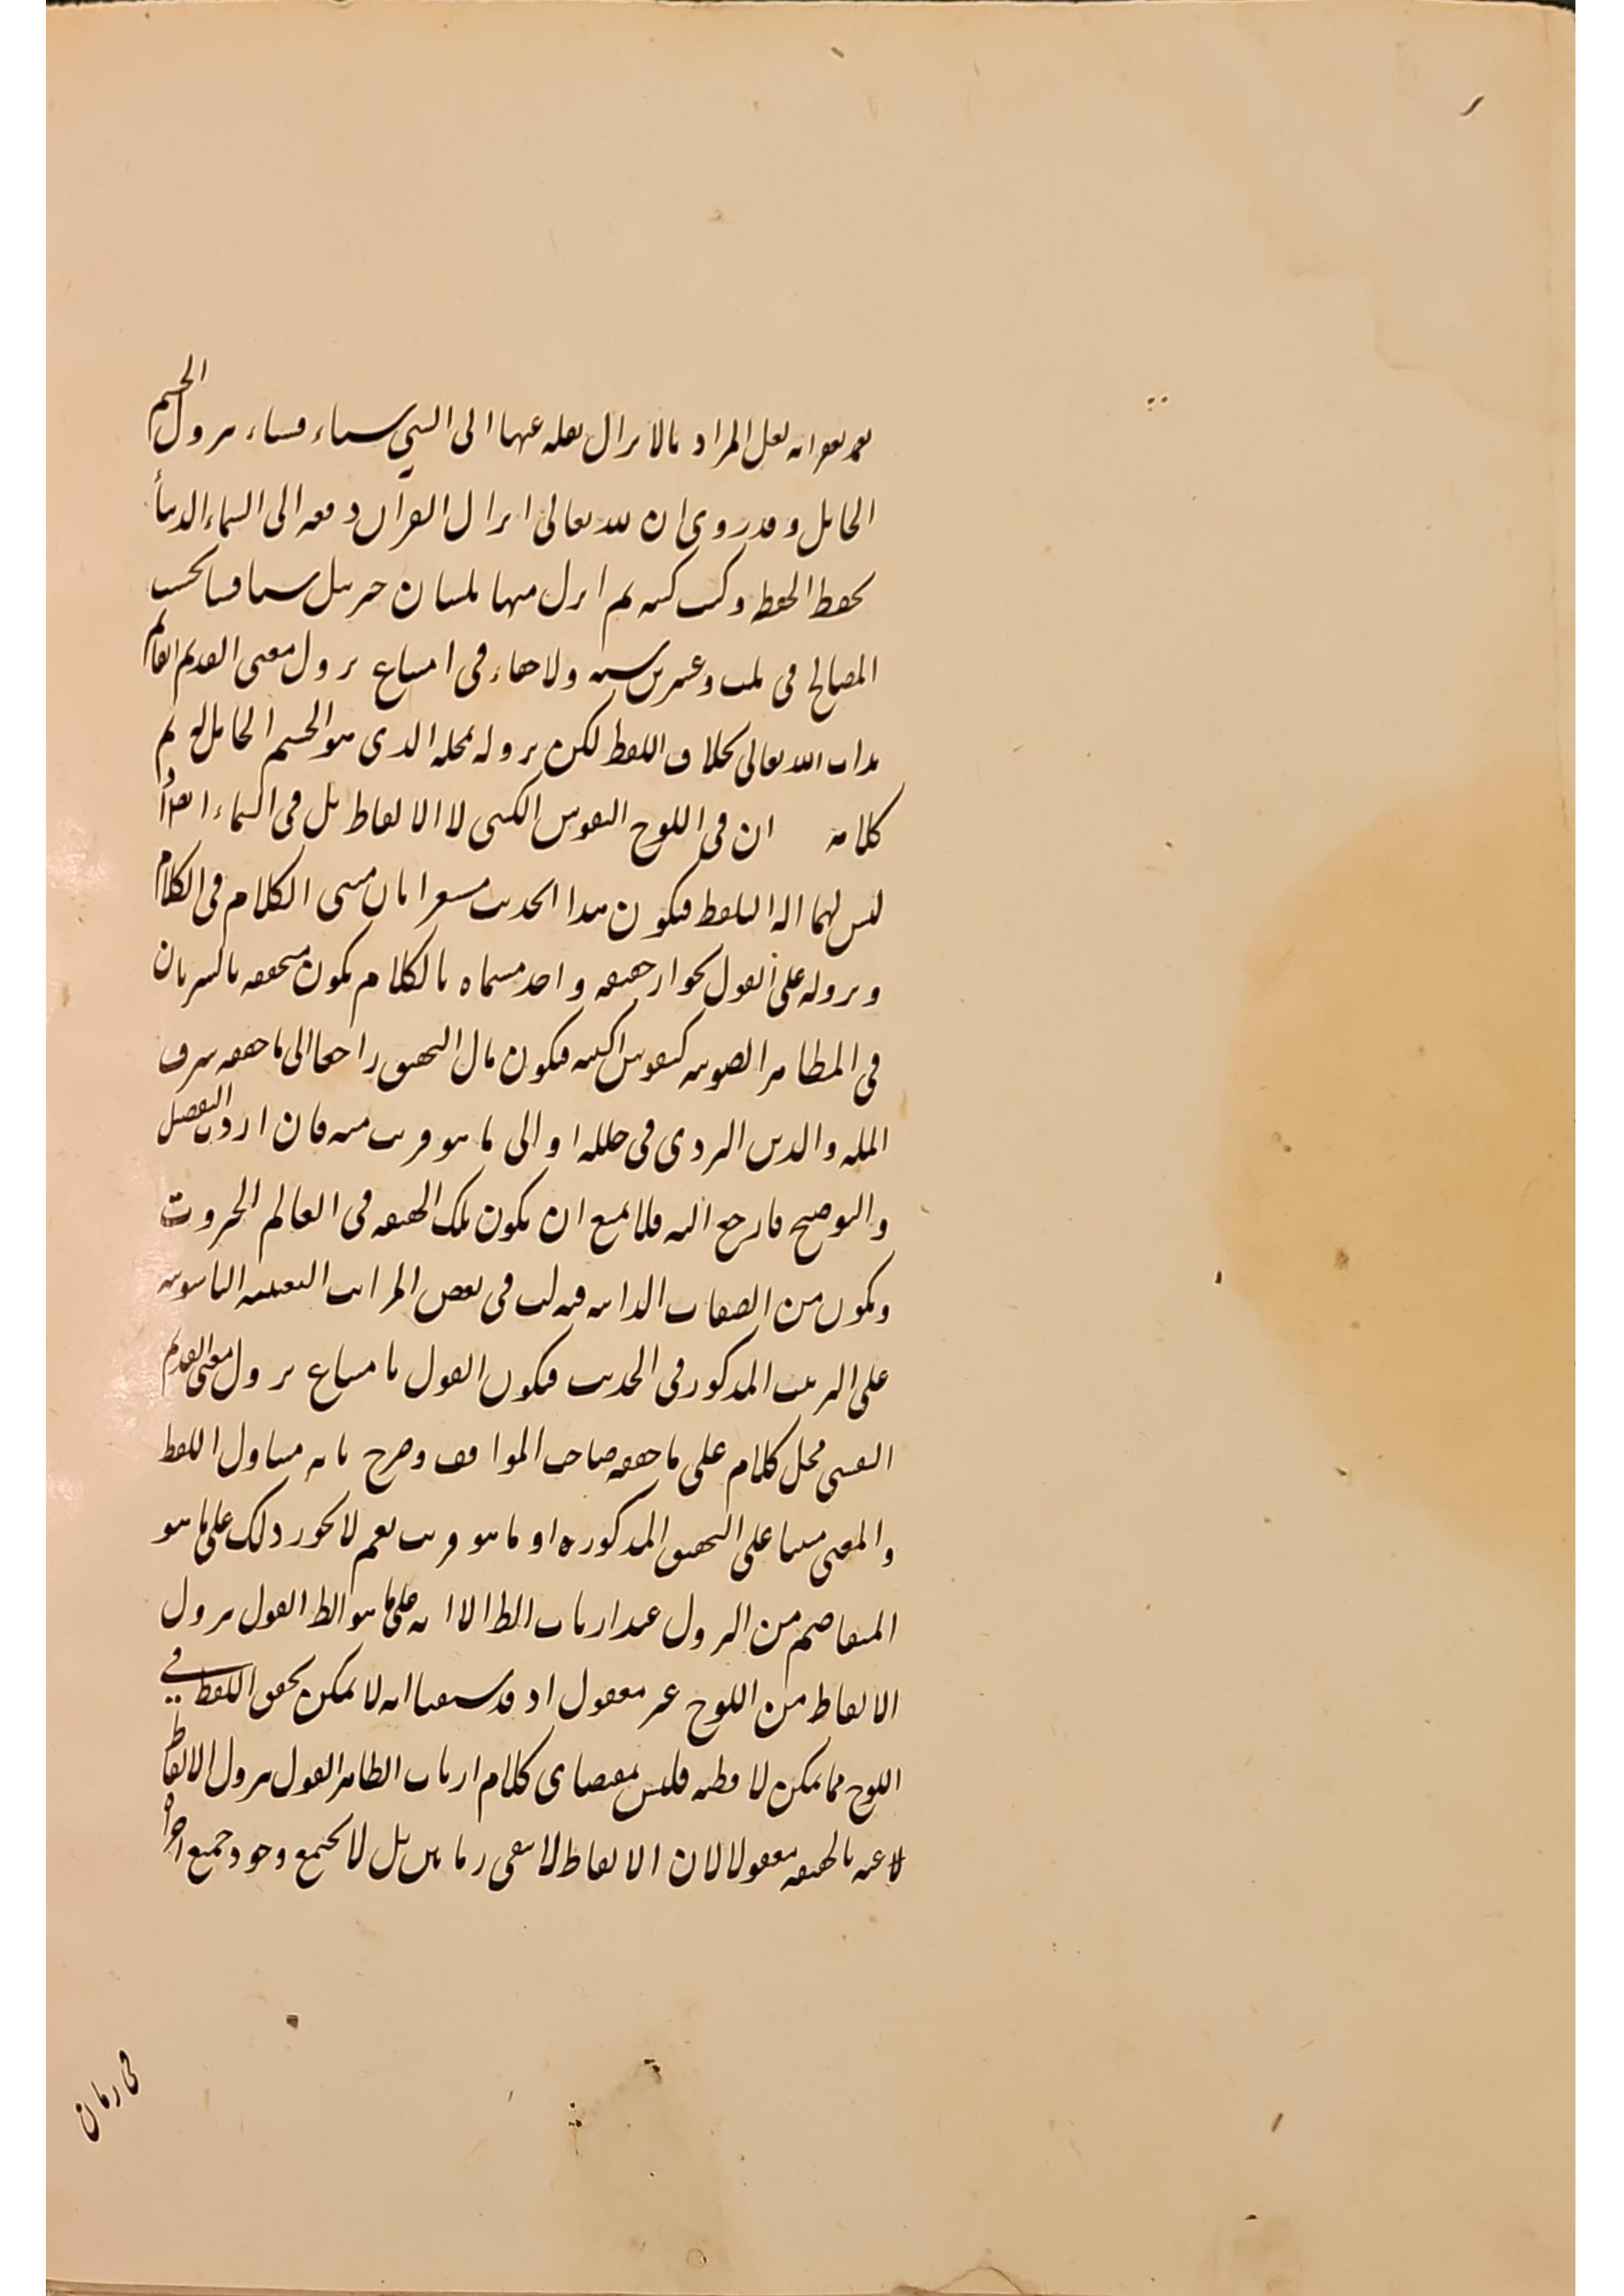 بعد بعوانه لعل المراد بالانزال نقله عنها الى النبي شياء فشياء بنزول الجسم
الحامل وقد روى ان الله تعالى انزال القرآن دفعه الى السماء الدنيا
تحفظ الحفظه وكتب كتبه ثم انزل منها بلسان جبرئيل شيا فشيا بحسب
المصالح فى ثلث وعشرين سنه ولا خفاء فى امتناع نزول معنى القديم القائم
بذات الله تعالى بخلاف اللفظ لكن نزوله بمحله الذى هو الجسم الحامل له ثم
كلامه ان فى اللوح النقوش الكتبى لا الالفاظ بل فى السماء ايضاً
ليس لهما اله التلفظ فيكون هذا الحديث مشعرا بان مسمى الكلام فى الكلام
ونزوله على القول بجواز حقيقه واحد مسماه بالكلام يكون متحققه بالسريان
فى المظاهر الصوتيه كنقوش الكتبيه فيكون مال التحقيق راجعا الى ما حققه شرف
المله والدين اليزدى فى حلله او الى ما هو قريب منه فان اردت التفصيل
والتوضيح فارجع اليه فلا يمنع ان يكون تلك الحقيقه فى العالم الجبروت
ويكون من الصفات الذاتيه فنزلت فى بعض المراتب التعينيه الناسوتيه
على الترتيب المذكور فى الحديث فيكون القول بامتناع نزول معنى القديم
النفسى محل كلام على ما حققه صاحب المواقف وصرح بانه متناول اللفظ
والمعنى مبنيا على التحقيق المذكوره او ما هو قريب نعم لا يجوز ذلك على ما هو
المتفاهم من النزول عند ارباب الظ الا انه على ما هو الظ القول بنزول
الالفاظ من اللوح غير معقول اذ قد سمعنا انه لا يمكن تحقق اللفظ في
اللوح مما يمكن لافظه فليس بمقتضاى كلام ارباب الظاهر القول بنزول الالفاظ
لا عنه بالحقيقه معقولا لان الالفاظ لا تبقى زمانين بل لا يجتمع وجود جميع اجزاء
فى زمان